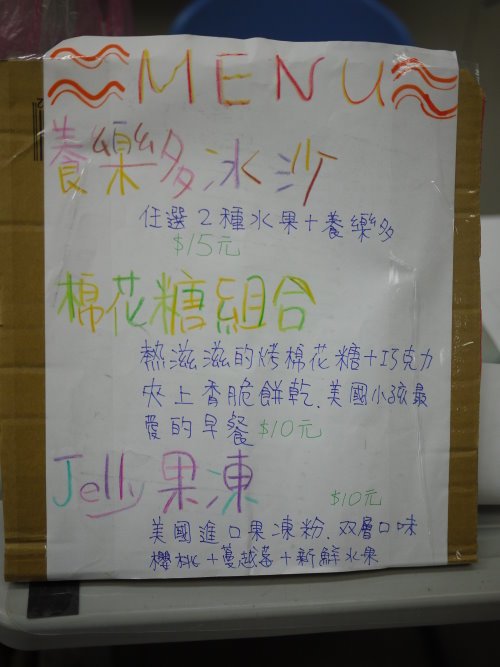 MENU
養樂多冰沙
任選2種水果+養樂多
$15元
棉花糖組合
熱滋滋的烤棉花糖+巧克力
夾上香脆餅乾、美國小孩最
愛的早餐 $10元
Jelly果凍
$10元
美國進口果凍粉、双層口味
櫻桃+蔓越莓+新鮮水果